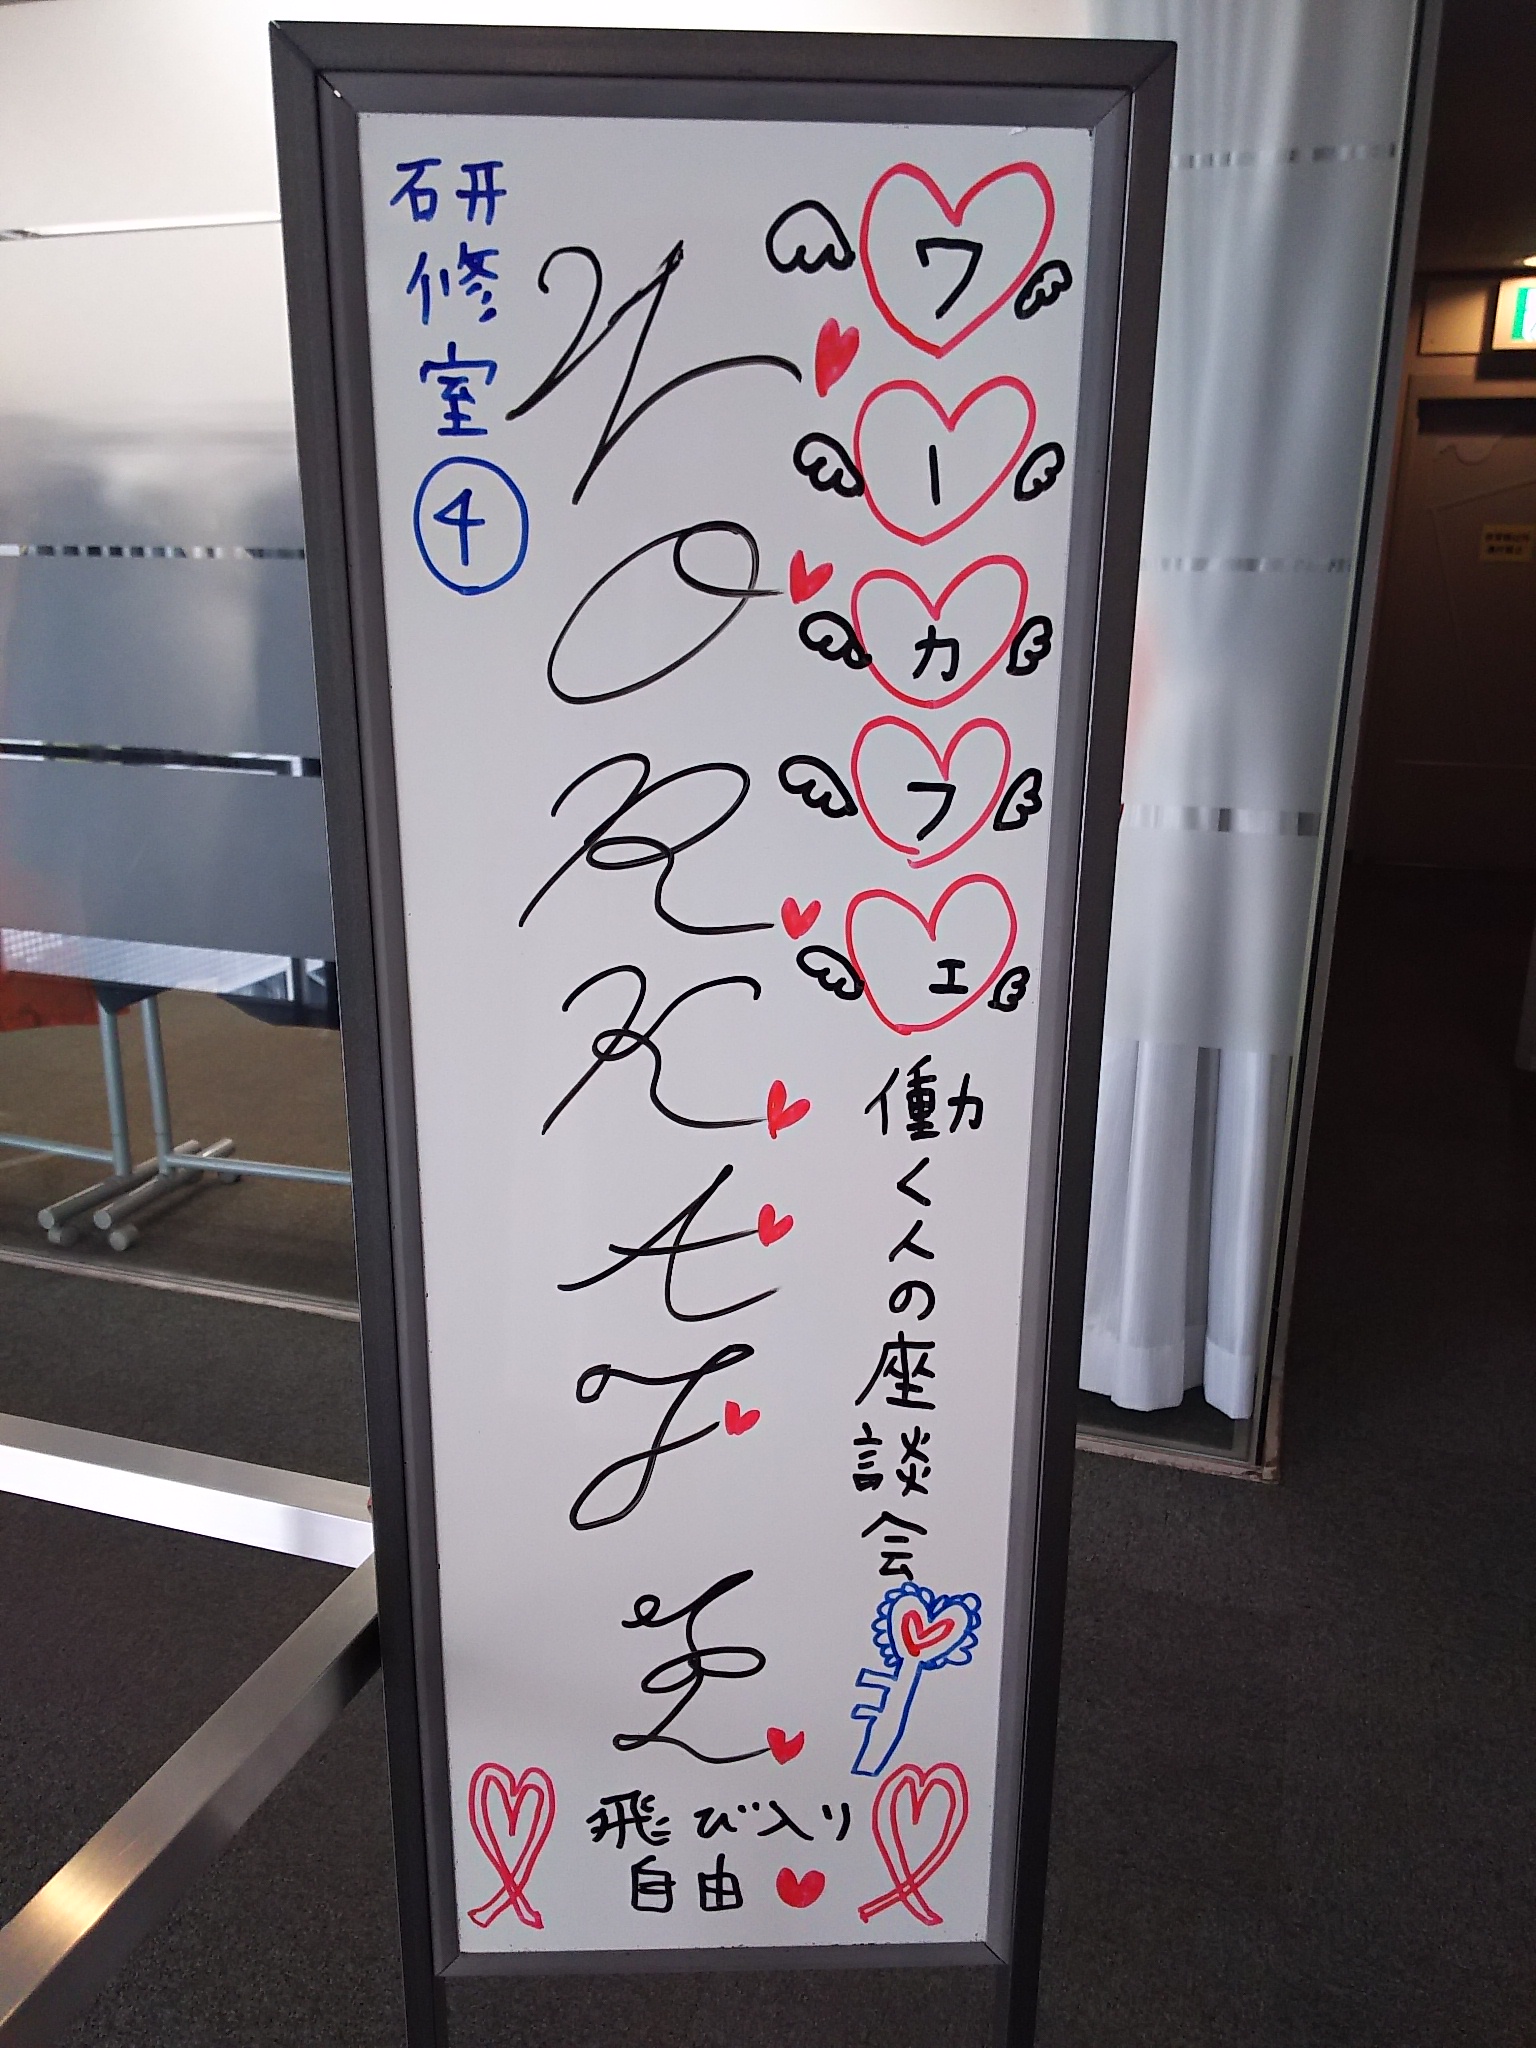 ワーカフェ
働く人の座談会
WORKAFE
研修室④
飛び入り
自由